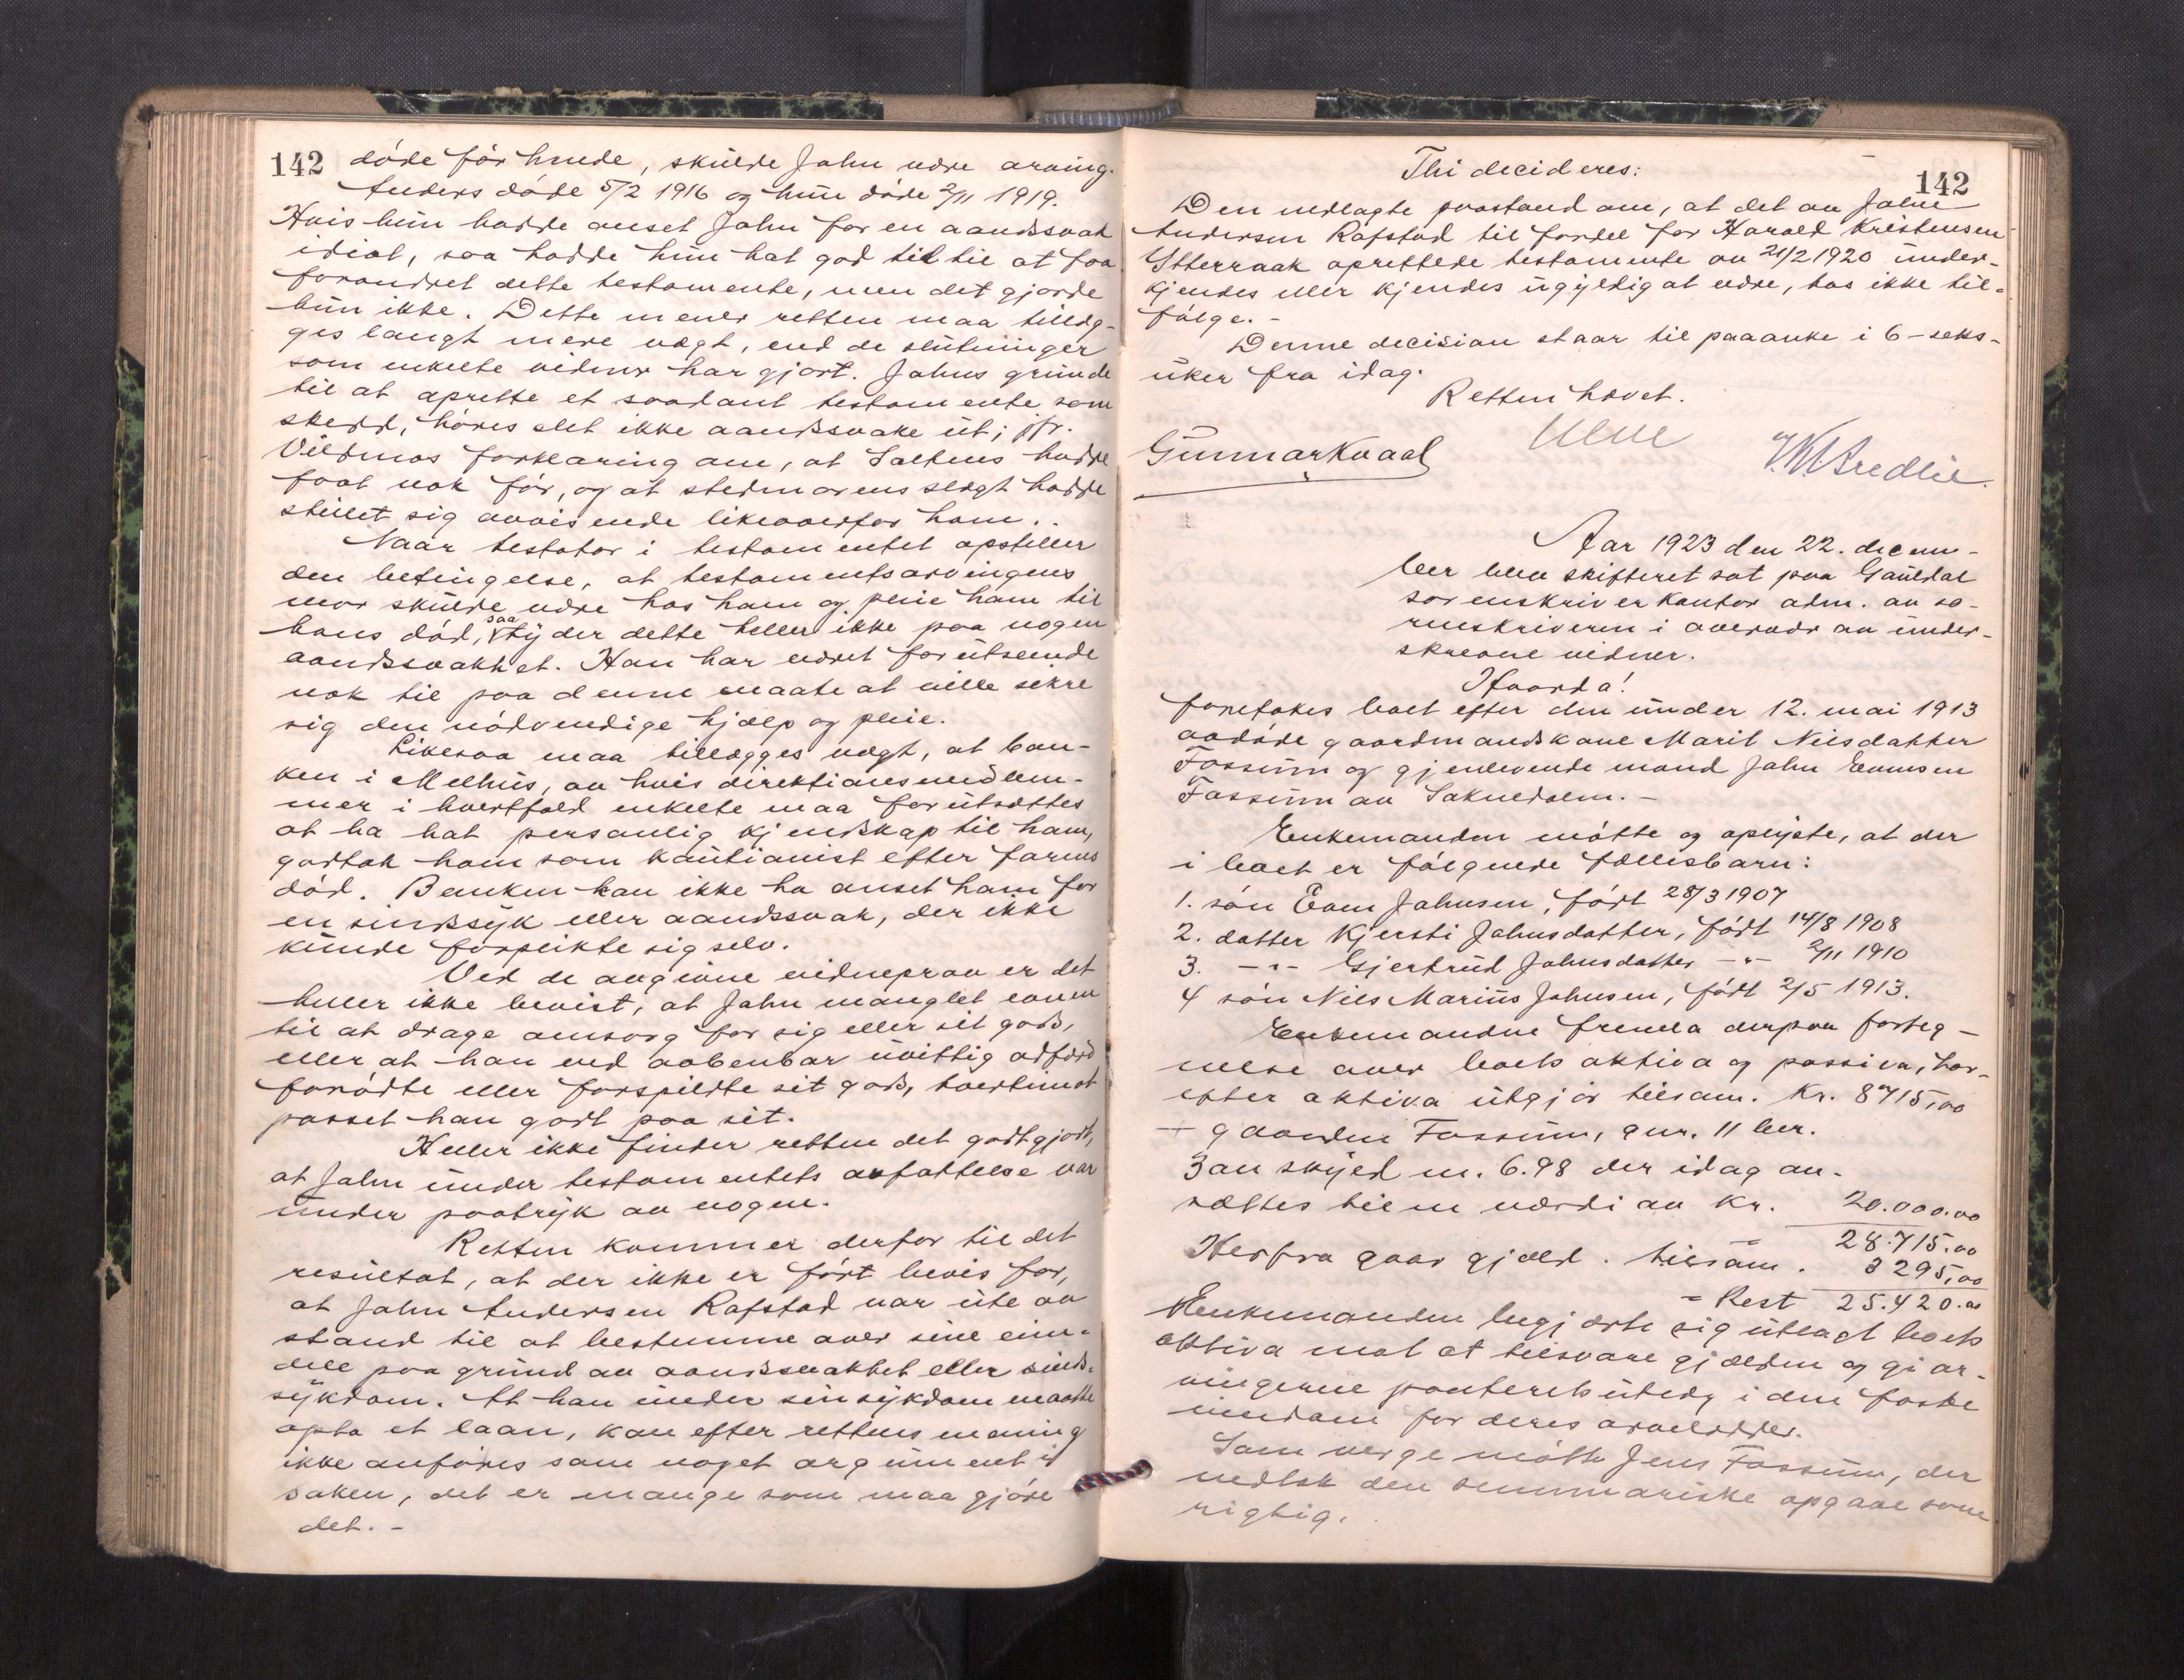 142 døde før hende, skulde John være arving.
Anders døde 5/2 1916 og hun døde 2/11 1919.
Hvis hun hadde anset John for en aandssvak
idiot, saa hadde hun hat god tid til at faa
forandret dette testamente, men det gjorde
hun ikke. Dette mener retten maa tillæg-
ges langt mere vægt, end de slutninger
som enkelte vidner har gjort. Johns grunde
til at oprette et saadant testamente som
skedd, høres slet ikke aandssvake ut; jfr.
Vildmos forklaring om, at Saltens hadde
faat nok før, og at stedmorens slægt hadde
stillet sig avvisende likeoverfor ham..
Naar testator i testamentet opstiller
den betingelse, at testamentsarvingens
mor skulde være hos ham og pleie ham til
hans død, saa tyder dette heller ikke paa nogen
aandssvakhet. Han har været forutseende
nok til paa denne maate at ville sikre
sig den nødvendige hjælp og pleie.
Likesaa maa tillægges vægt, at ban-
ken i Melhus, av hvis direktionsmedlem-
mer i hvertfald enkelte maa forutsættes
at ha hat personlig kjendskap til ham,
godtok ham som kautionist efter farens
død. Banken kan ikke ha anset ham for
en sindssyk eller aandssvak, der ikke
kunde forplikte sig selv.
Ved de avgivne vidneprov er det
heller ikke bevist, at John manglet evnen
til at drage omsorg for sig eller sit gods,
eller at han ved aabenbar uvittig adfærd
forødte eller forspildte sit gods, tvertimot
passet han godt paa sit.
Heller ikke finder retten det godtgjort,
at John under testamentets avfattelse var
under paatryk av nogen.
Retten kommer derfor til det
resultat, at der ikke er ført bevis for,
at John Andersen Rafstad var ute av
stand til at bestemme over sine eien-
dele paa grund av aandssvakhet eller sinds-
sykdom. At han under sin sykdom maatte
opta et laan, kan efter rettens mening
ikke anføres som noget argument i
saken, det er mange som maa gjøre
det. -
142
Thi decideres:
Den nedlagte paastand om, at det av John
Andersen Rafstad til fordel for Harald Kristensen
Ytterraak oprettede testamente av 21/2 1920 under-
kjendes eller kjendes ugyldig at være, tas ikke til-
følge. -
Denne decision staar til paaanke i 6 - seks -
uker fra idag.
Retten hævet.
Gunnar Kvaal
Aar 1923 den 22. decem-
ber blev skifteret sat paa Gauldal
sorenskriverkontor adm. av so-
renskriveren i overvær av under-
skrevne vidner.
Hvorda!
foretokes boet efter den under 12. mai 1913
avdøde gaardmandskone Marit Nilsdatter
Fossum og gjenlevende mand John Evensen
Fossum av Soknedalen. -
Enkemanden møtte og oplyste, at der
i boet er følgende fællesbarn:
1. søn Even Johnsen, født 28/3 1907
2. datter Kjersti Johnsdatter, født 14/8 1908
3. -"- Gjertrud Johnsdatter -"- 2/11 1910
4 søn Nils Marius Johnsen, født 2/5 1913.
Enkemanden fremla derpaa forteg-
nelse over boets aktiva og passiva, hvor-
efter aktiva utgjør tilsam. Kr. 8715,00
+ gaarden Fossum, gnr. 11 bnr.
3 av skyld m. 6.98 der idag an-
sættes til en værdi av Kr. 20.000.00
28.715.00
Herfra gaar gjæld. tilsam. 3295,00
= Rest 25.420.00
Enkemanden begjærte sig utlagt boets
aktiva mot at tilsvare gjælden og gi ar-
vingerne panteretsutlæg i den faste
eiendom for deres arvelodder.
Som verge møtte Jens Fossum, der
vedtok den summariske opgave som
rigtig.